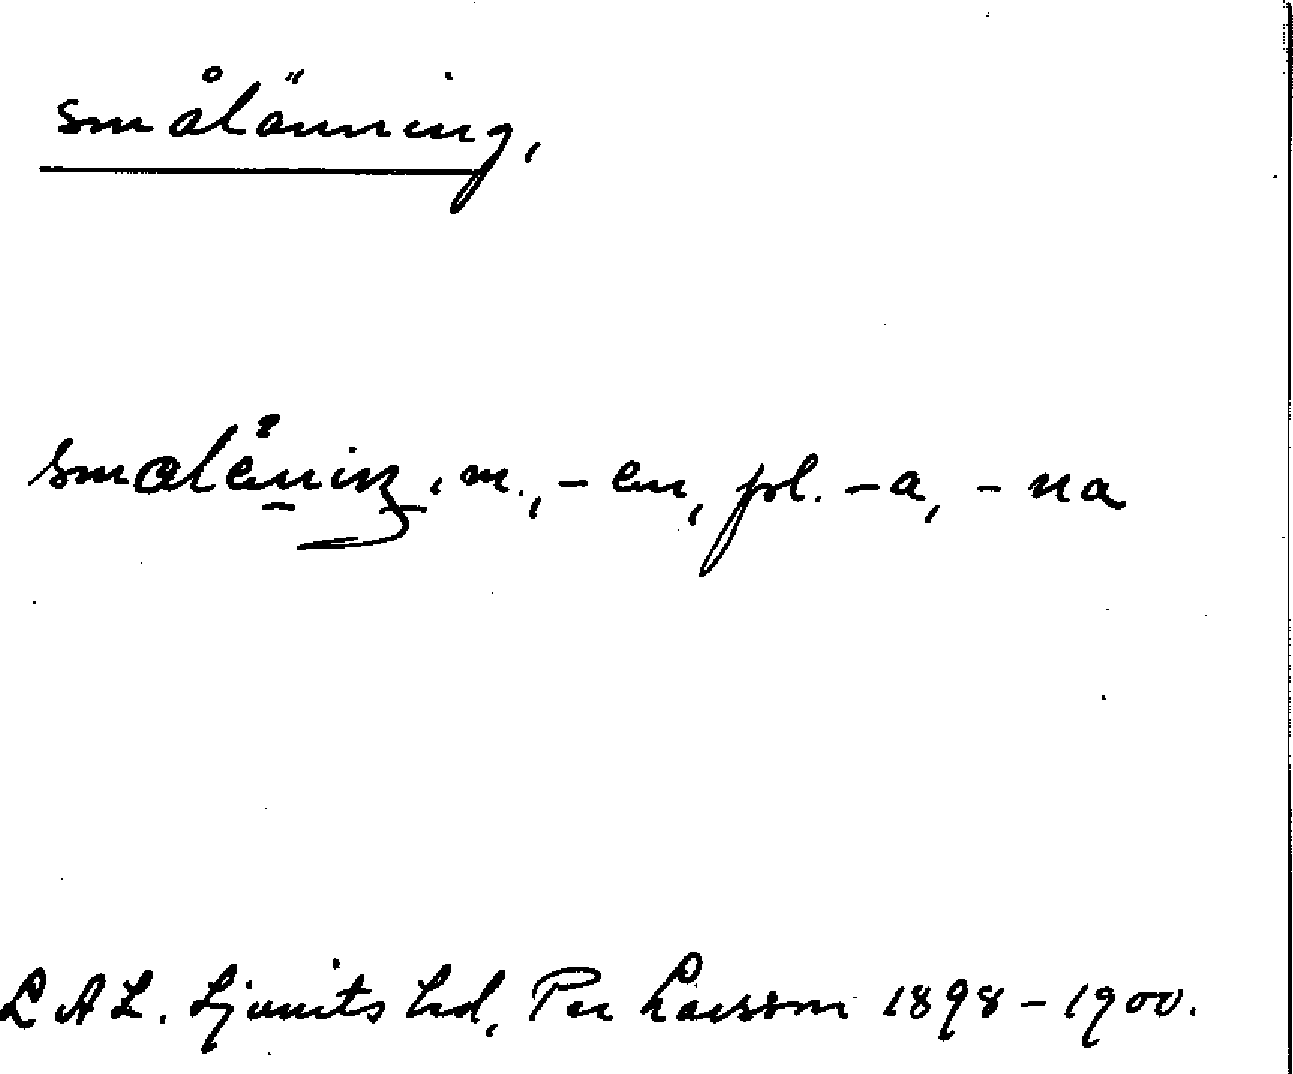 smålänning,
smaleniŋ, m., -en, pl. -a, -na
LAL. Ljunits hd, Per Larsson 1898-1900.